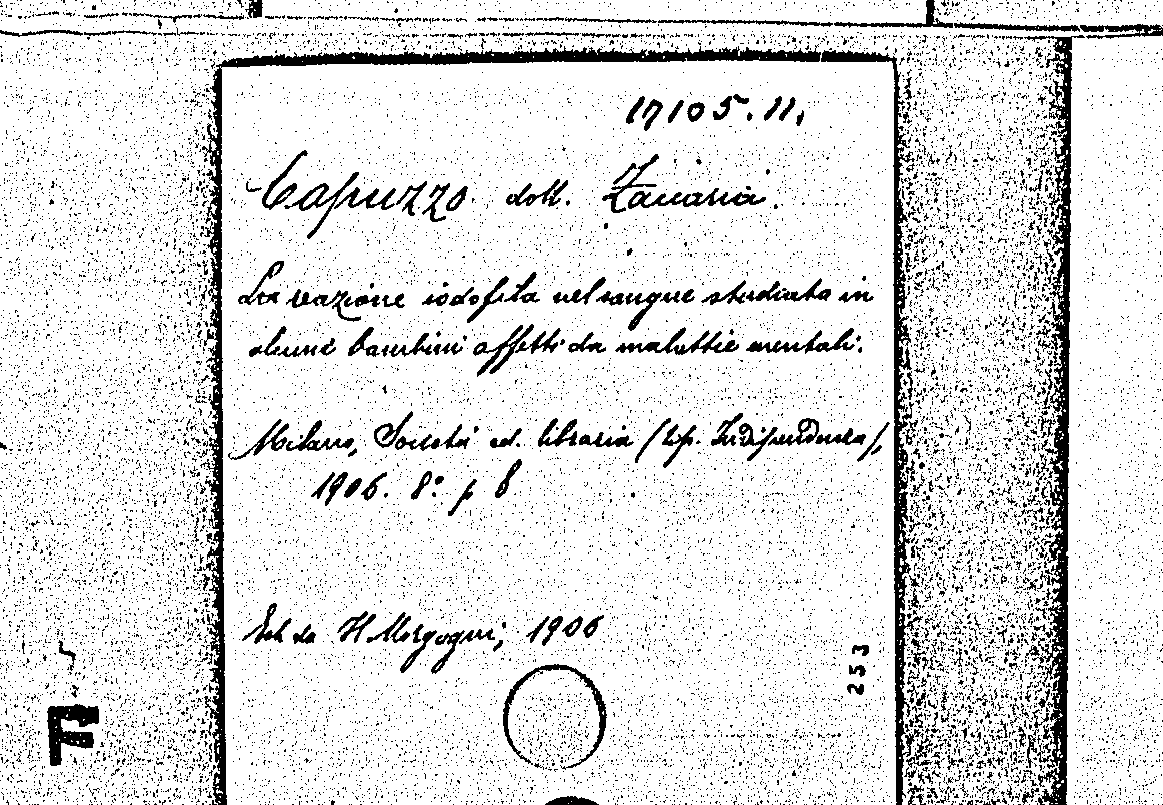 17105.11.
Capuzzo dott. Zaccaria.
La reazione iodofila nel sangue studiata in
alcuni bambini affetti da malattie mentali.
Milano, Società ed. libraria (tip. Indipendenza),
1906. 8.° p 8
Est da Il Morgagni, 1906
253
F